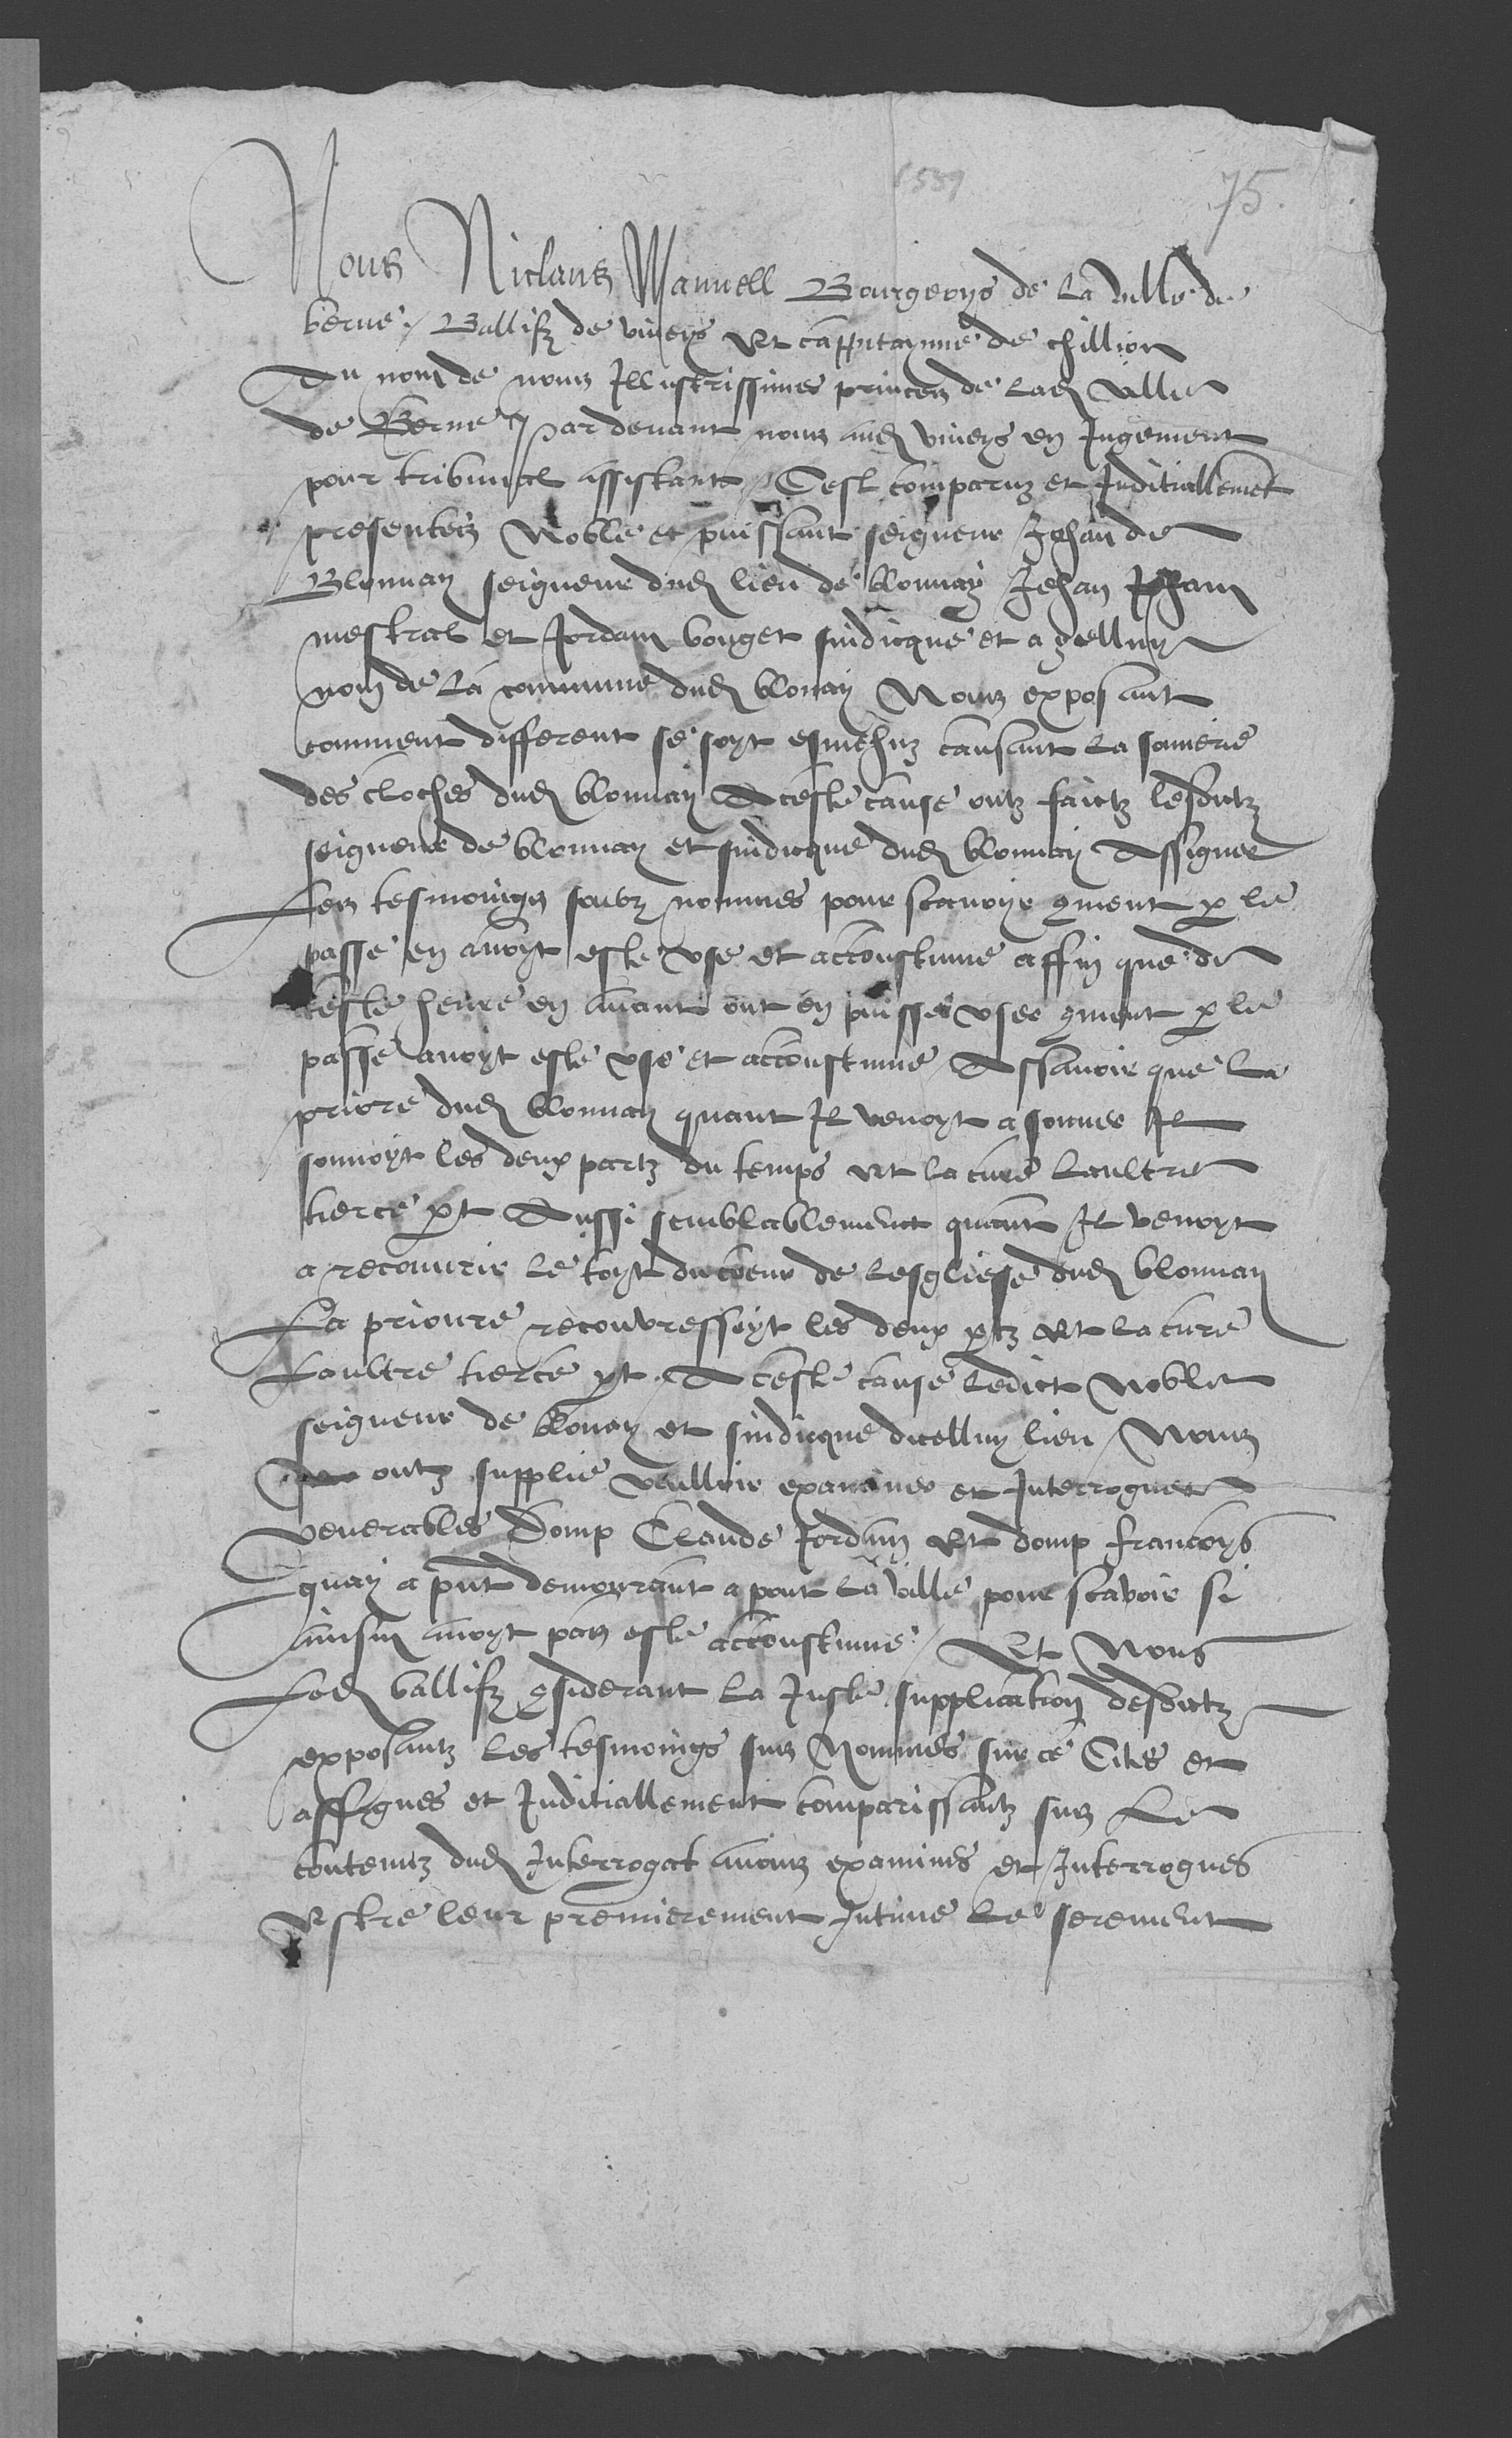 1539
75.
Nous Niclaus Manuell Bourgeoys de la ville de
berne / Ballifz de viveys Et cappitaynne de chillion
Au nom de nous Illustrissimes princes de lad ville
de Berne Par devant nous aud viveys en Jugement
pour tribunal assistant / Cest comparuz et Juditiallemet
presentez Noble et puissant seigneur Jehan de
Blonnay seigneur dud lieu de blonnay Jehan
mestral et Jordam bouget sindicque et a zelluy
nom de la commune dud blonay Nous exposant
comment different se soyt esmehuz causant la sonnerie
des cloches dud blonnay A ceste cause ontz faictz lesdictz
seigneur de blonnay et sindicque dud blonnay Assigner
Les tesmoings soubz nommes pour scavoyr qment p le
passe en avoyt este use et accoustume affin que de
ceste heure en avant ont en puisses user qment p le
passe avoyt este use et accoustume Assavoir que la
priore dud blonnay quant Il venoyt a sonner Il
sonnoyt les deux partz du temps Et la cure laultre
tierce pt Aussi semblablement quant Il venoyt
a recouvrir le toyt du coeur de lesgliese dud blonnay
La prioure recouvressoyt les deux ptz Et la cure
Laultre tierce pt A ceste cause ledict Noble
seigneur de blonay et sindicque dicelluy lieu / Nous
ontz supplie veulloir examiner et Interroguer
venerables Domp Claude Jordan Et domp francoys
quay a pnt demourant a pont la ville pour scavoir si
ainsin avoyt pas este accoustume / Et Nous
Led ballifz qsiderant la Juste supplication desdictz
exposantz les tesmoings sus Nommes sur ce Cites et
assignes et Juditiallement comparissantz sus Le
contenuz dud Interrogat avons examines et Interrogues
Estre leur premierement Intime le serement